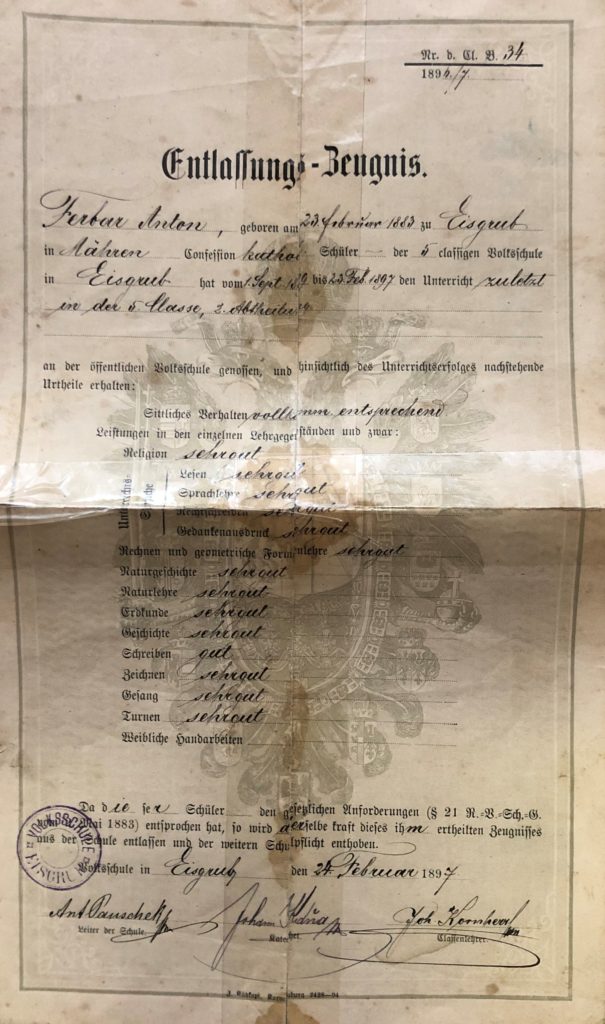 Nr. d. Cl. B. 34
1896/7.
Entlassungs-Zeugnis.
Ferbar Anton, geboren am 23. Februar 1883 zu Eisgrub
in Mähren Confession kathol Schüler — der 5 classigen Volksschule
in Eisgrub hat vom 1. Sept 189 bis 23. Feb. 1897 den Unterricht zuletzt
in der 5 Classe, 2. Abtheilung
an der öffentlichen Volksschule genossen, und hinsichtlich des Unterrichtserfolges nachstehende
Urtheile erhalten:
Sittliches Verhalten vollkomm. entsprechend
Leistungen in den einzelnen Lehrgegenständen und zwar:
Religion sehrgut
Unterrichts-Sprache
Lesen sehrgut
Sprachlehre sehrgut
Rechtschreiben sehrgut
Gedankenausdruck sehrgut
Rechnen und geometrische Formenlehre sehrgut
Naturgeschichte sehrgut
Naturlehre sehrgut
Erdkunde sehrgut
Geschichte sehrgut
Schreiben gut
Zeichnen sehrgut
Gesang sehrgut
Turnen sehrgut
Weibliche Handarbeiten
Da dieser Schüler den gesetzlichen Anforderungen (§ 21 R.-V.-Sch.-G.
vom 2. Mai 1883) entsprochen hat, so wird derselbe kraft dieses ihm ertheilten Zeugnisses
aus der Schule entlassen und der weitern Schulpflicht enthoben.
VOLKSSCHULE EISGRUB
Volksschule in Eisgrub, den 24. Februar 1897
Ant. Pauschek Johann Joh Kornherr
Leiter der Schule. Katechet. Classenlehrer.